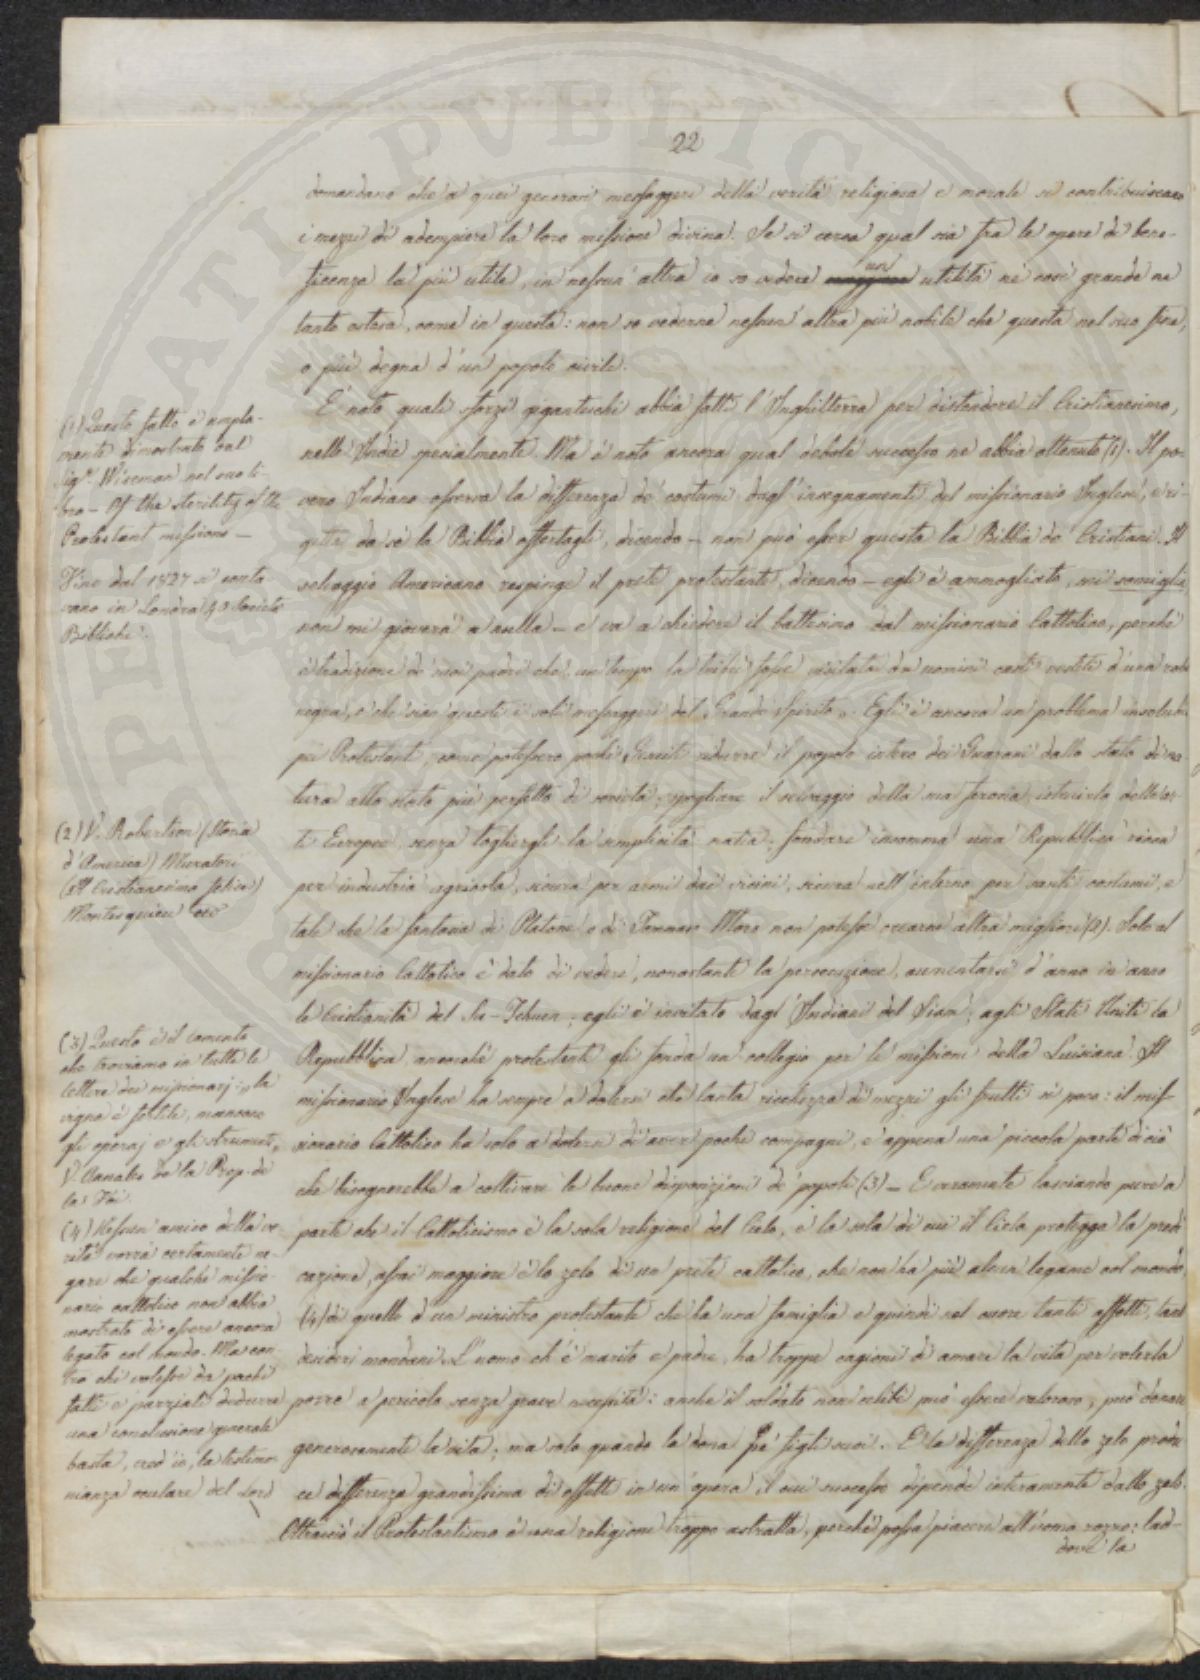 22
domandano che a quei generosi messaggeri della verità religiosa e morale si contribuiscano
i mezzi di adempiere la loro missione divina. Se si cerca qual sia fra le opere di bene-
ficenza la più utile, in nessun' altra io so vedere un' utilità nè così grande nè
tanto estesa, come in questa: non so vederne nessun' altra più nobile che questa nel suo fine,
o più degna d'un popolo civile.
È noto quali sforzi giganteschi abbia fatti l'Inghilterra per distendere il Cristianesimo,
nelle Indie specialmente. Ma è noto ancora qual debole successo ne abbia ottenuto (1). Il po-
vero Indiano osserva la differenza de' costumi dagl' insegnamenti del missionario Inglese, e ri-
getta da sè la Bibbia offertagli, dicendo - non può esser questa la Bibbia de' Cristiani. Il
selvaggio Americano respinge il prete protestante, dicendo - egli è ammogliato, mi somiglia,
non mi gioverà a nulla - e va a chiedere il battesimo dal missionario Cattolico, perchè
è tradizione de' suoi padri che un tempo la tribù fosse visitata da uomini casti vestiti d'una roba
negra, e che sian questi i soli messaggeri del Grande Spirito. Egli è ancora un problema insolubile
pei Protestanti, come potessero pochi Gesuiti ridurre il popolo intero dei Guarani dallo stato di na-
tura allo stato più perfetto di società, spogliare il selvaggio della sua ferocia, istruirlo delle ar-
ti Europee senza togliergli la semplicità natia; fondare insomma una Repubblica ricca
per industria agricola, sicura per armi dai vicini, sicura nell' interno per santi costumi, e
tale che la fantasia di Platone e di Tommaso Moro non potesse crearne altra migliore (2). Solo al
missionario Cattolico è dato di vedere, nonostante la persecuzione, aumentarsi d'anno in anno
le Cristianità del Su-Tchuen; egli è invitato dagl' Indiani del Siam; agli Stati Uniti la
Repubblica, ancorchè protestante gli fonda un collegio per le missioni della Luisiana. Il
missionario Inglese ha sempre a dolersi che tanta ricchezza di mezzi gli frutti sì poco: il mis-
sionario Cattolico ha solo a dolersi di aver pochi compagni, e appena una piccola parte di ciò
che bisognerebbe a coltivare le buone disposizioni de' popoli (3) - E veramente lasciando pure a
parte che il Cattolicismo è la sola religione del Cielo, è la sola di cui il Cielo protegga la predi-
cazione, assai maggiore è lo zelo di un prete cattolico, che non ha più alcun legame col mondo,
(4) di quello d'un ministro protestante che ha una famiglia e quindi nel cuore tanti affetti, tanti
desideri mondani. L'uomo ch'è marito e padre, ha troppe cagioni di amare la vita per volerla
porre a pericolo senza grave necessità: anche il soldato non celibe può essere valoroso, può donare
generosamente la vita; ma solo quando la dona pe' figli suoi. E la differenza dello zelo produ-
ce differenza grandissima di effetti in un' opera, il cui successo dipende interamente dallo zelo.
Oltracciò il Protestantismo è una religione troppo astratta, perchè possa piacere all' uomo rozzo: lad-
dove la
(1) Questo fatto è ampla-
mente dimostrato dal
Sigr. Wiseman nel suo li-
bro - Of the sterility of the
Protestant missions -
Fino dal 1827 si conta-
vano in Londra 40 Società
Bibliche.
(2) V. Robertson (Storia
d'America) Muratori
(Il Cristianesimo felice)
Montesquieu ecc
(3) Questo è il lamento
che troviamo in tutte le
lettere dei missionarj: "la
vigna è fertile, mancano
gli operaj e gli strumenti"
V. Annales de la Prop. de
la Foi.
(4) Nessun amico della ve-
rità vorrà certamente ne-
gare che qualche missio-
nario cattolico non abbia
mostrato di essere ancora
legato col mondo. Ma con-
tro chi volesse da pochi
fatti e parziali dedurre
una conclusione generale
basta, cred' io, la testimo-
nianza oculare del Lord